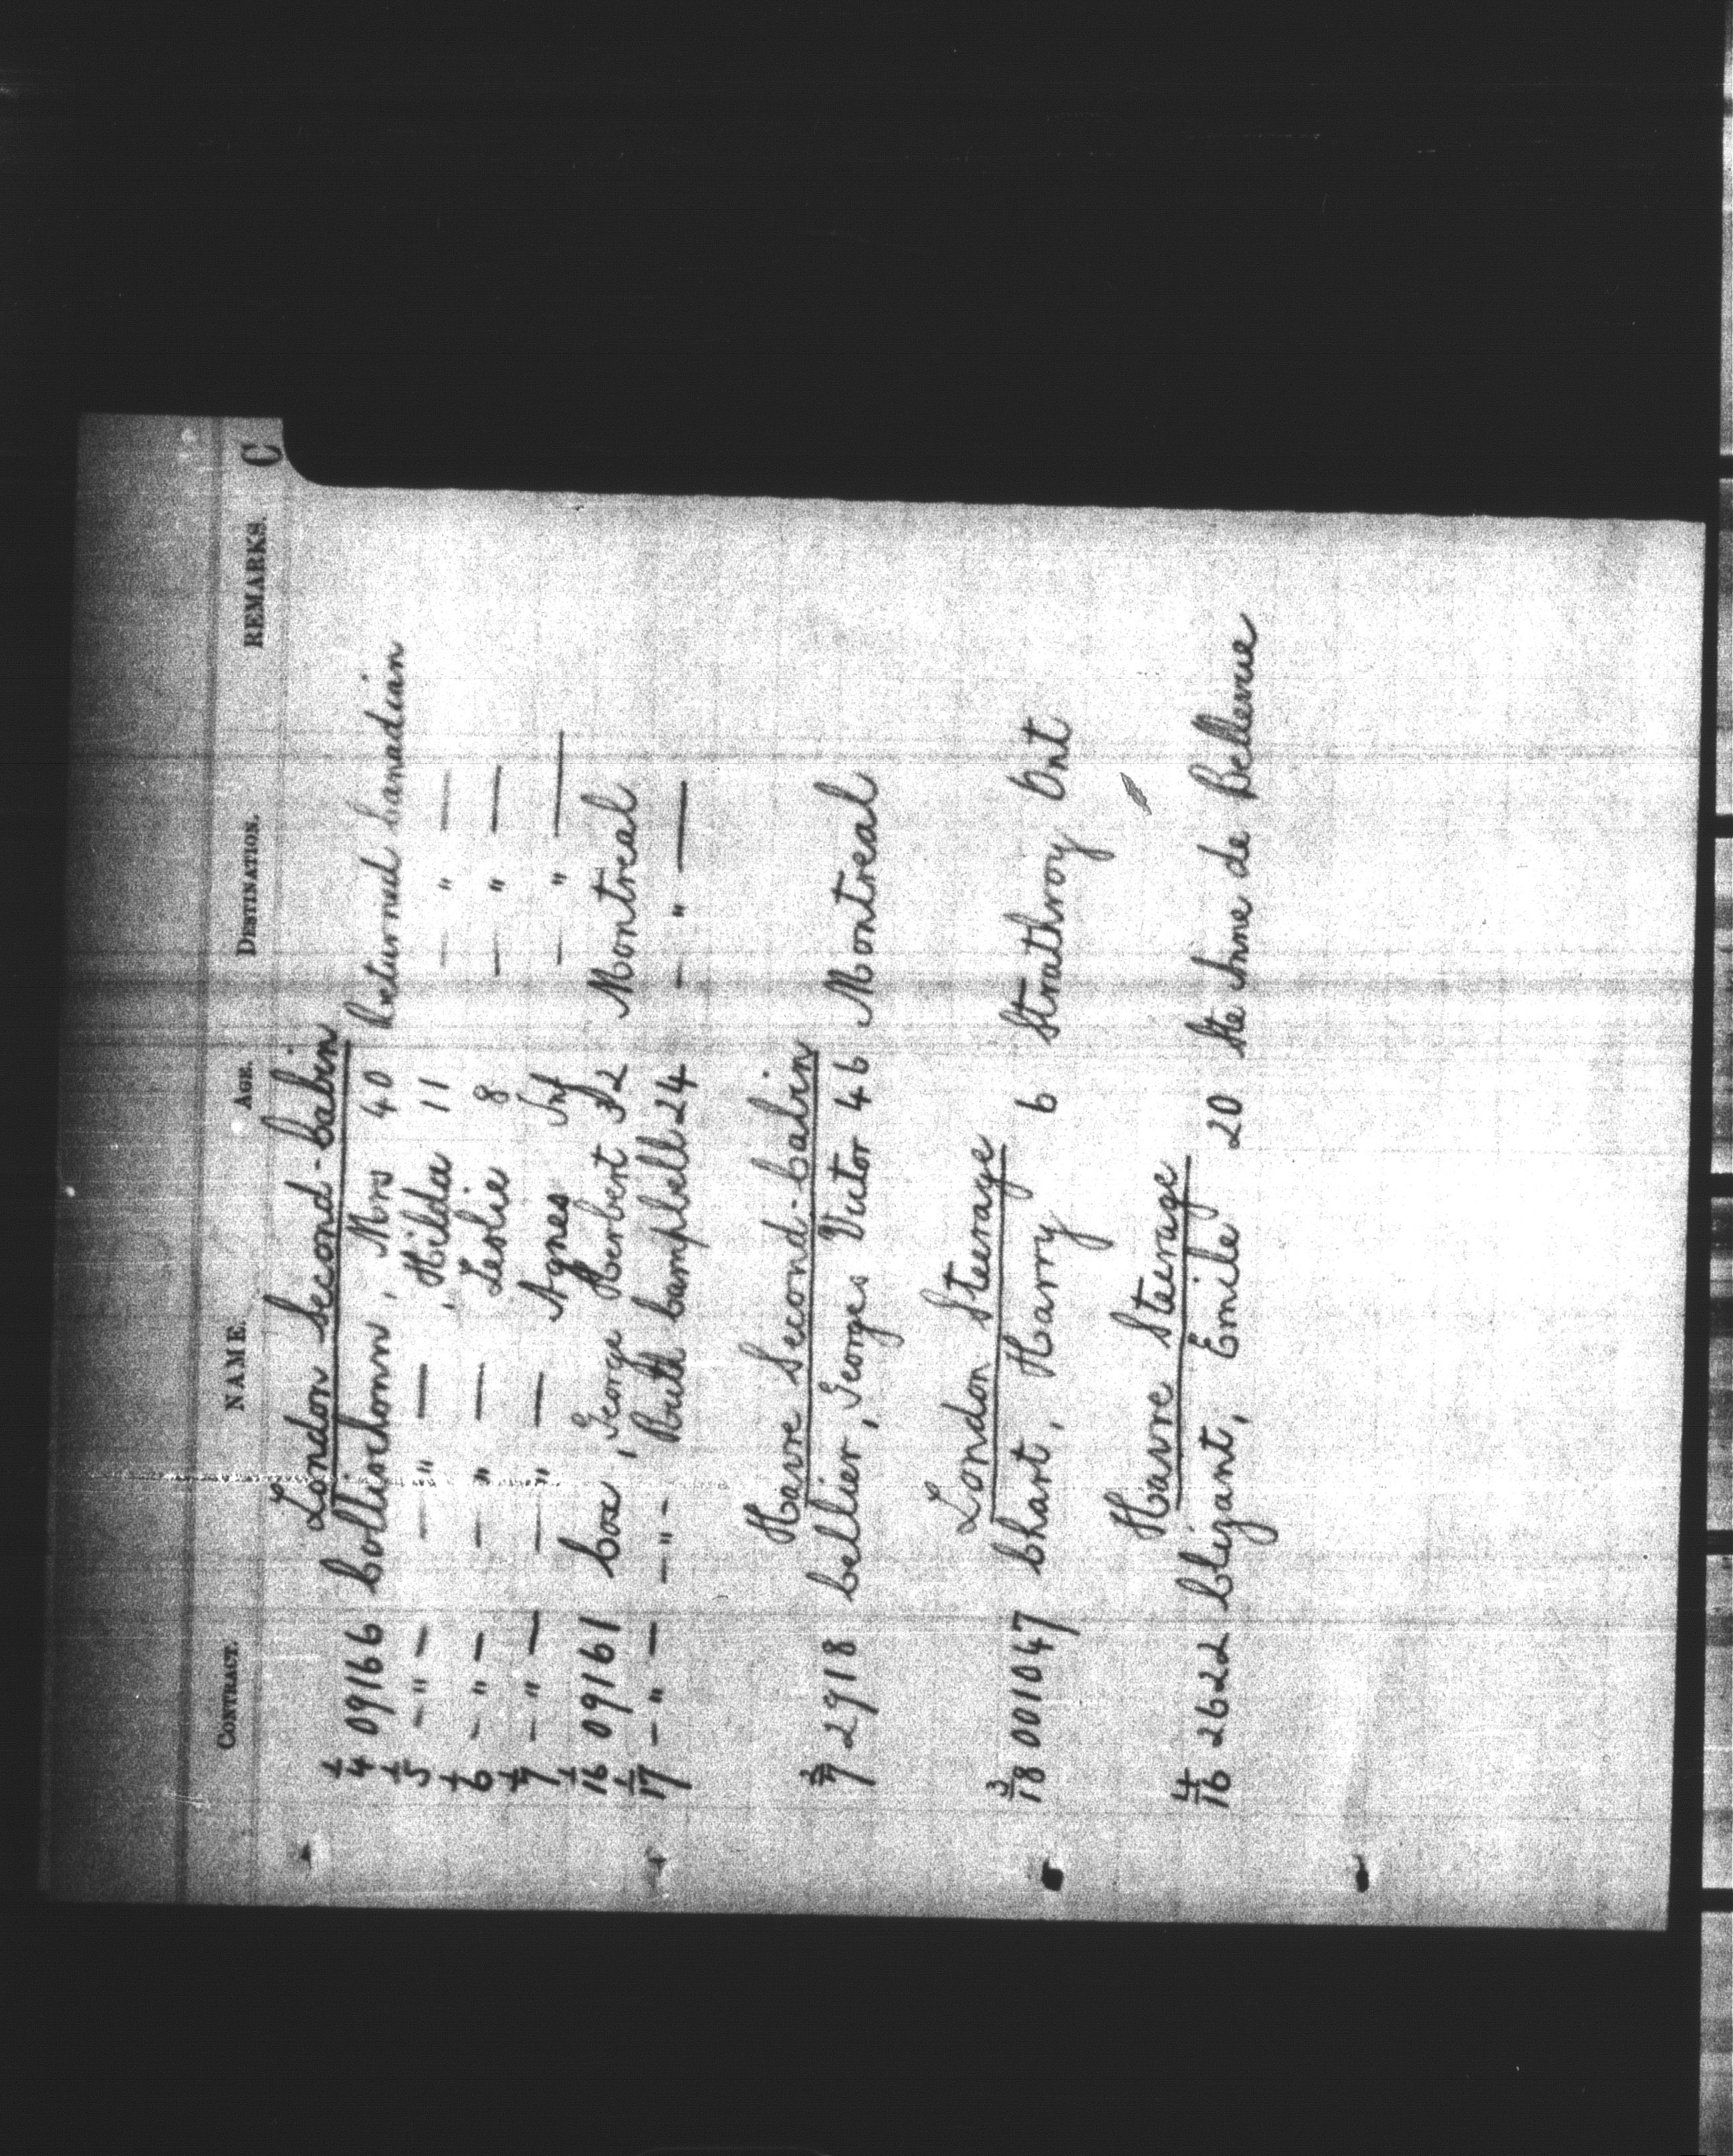 CONTRACT. NAME. AGE. DESTINATION. REMARKS. C
London Second-Cabin
1/4 09166 Collischonn, Mrs 40 Returned Canadian
1/5 - " - — " — , Hilda 11 — " —
1/6 - " - — " — Leslie 8 — " —
1/7 - " - — " — Agnes Inf — " —
1/16 09161 Cox, George Herbert 32 Montreal
1/17 - " - - " - Ruth Campbell 24 - " —
Havre Second-Cabin
2/7 2918 Cellier, Georges Victor 46 Montreal
London Steerage
3/18 001047 Chart, Harry 6 Strathroy Ont
Havre Steerage
4/16 2622 Clizant, Emile 20 Ste Anne de Bellevue